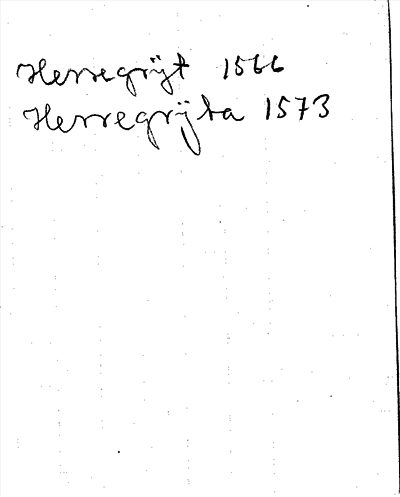 Herregrijt 1566
Herregrijta 1573